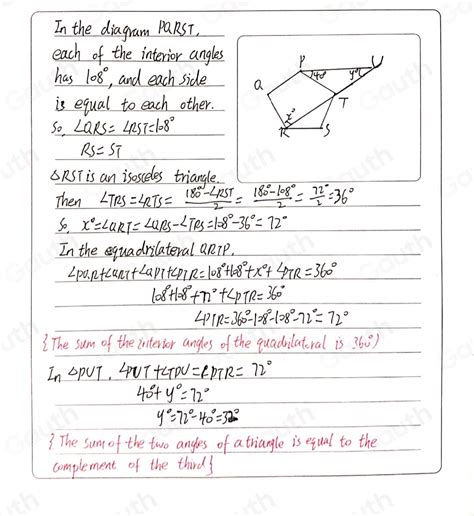 In the diagram PQRST,
each of the interior angles
has 108°, and each side
is equal to each other.
So, ∠QRS= ∠RST=108°
RS= ST
△RST is an isosceles triangle.
Then ∠TRS=∠RTS= 180°-∠RST/2 = 180°-108°/2 = 72°/2 =36°
So, x°=∠QRT=∠QRS-∠TRS=108°-36°= 72°
In the equadrilateral QRTP,
∠PQR+∠QRT+∠QPT+∠PTR=108°+108°+x°+∠PTR=360°
108°+108°+72°+∠PTR= 360°
∠PTR=360°-108°-108°-72°= 72°
{The sum of the interior angles of the quadrilateral is 360°}
In △PUT, ∠PUT+∠TPU=∠PTR= 72°
40°+ y°= 72°
y°=72°-40°=32°
{The sum of the two angles of a triangle is equal to the
complement of the third}
P
U
140°
y°
Q
T
x°
R
S
Gauth